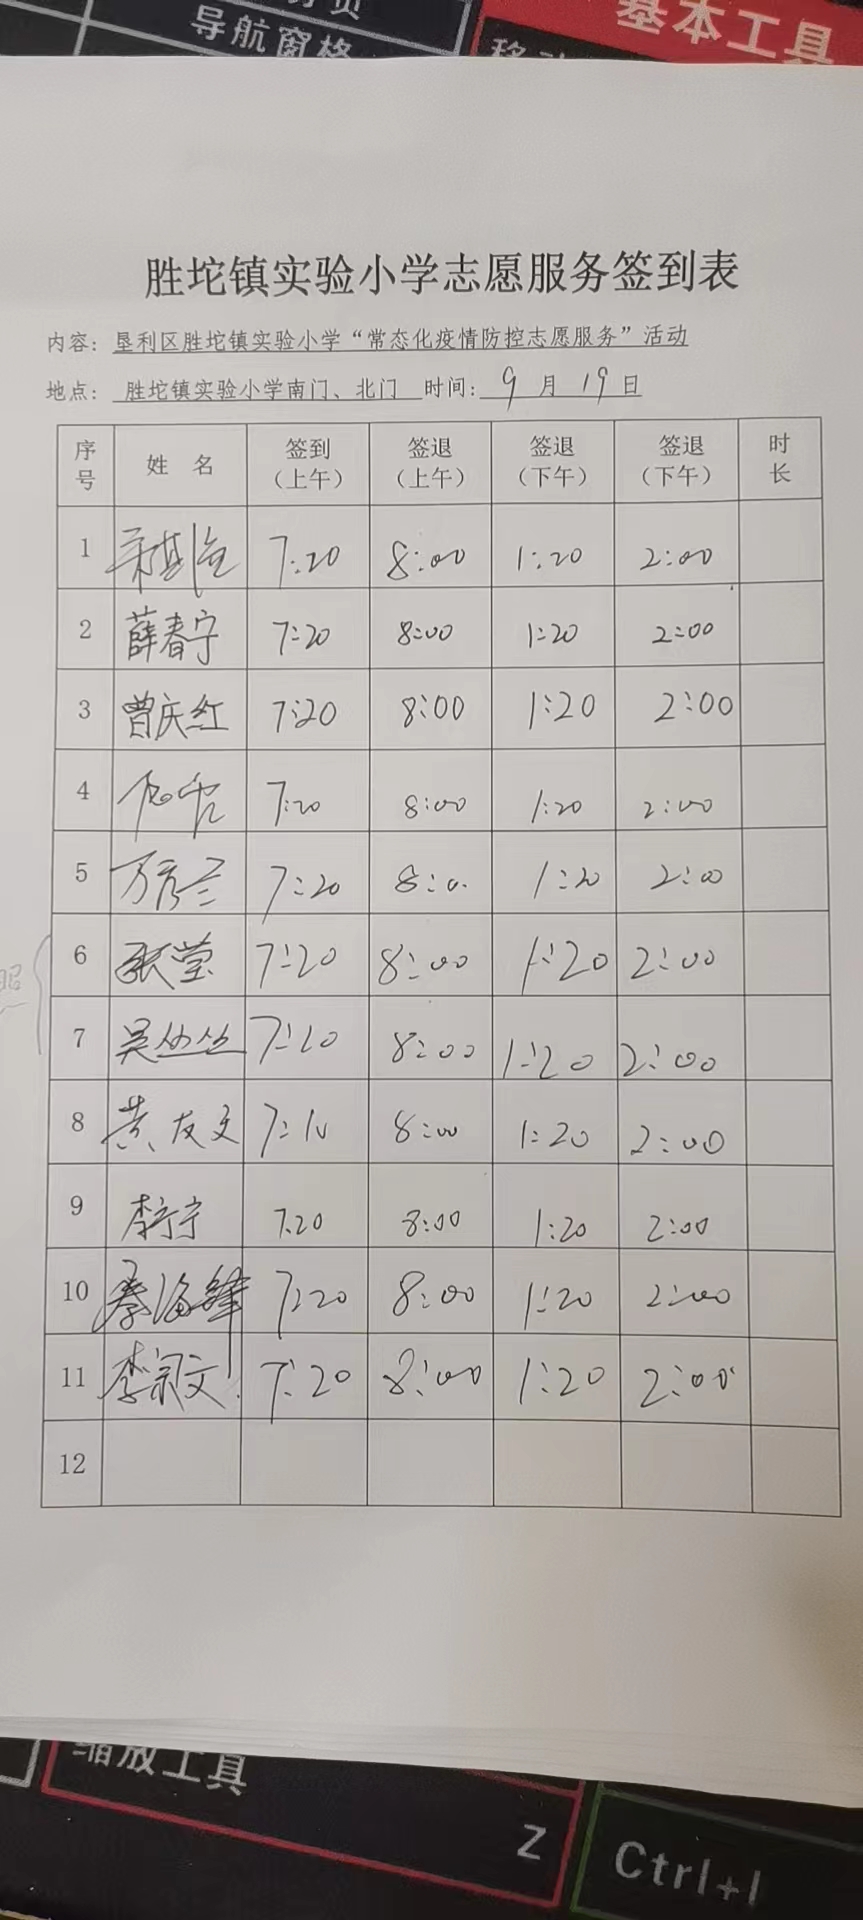 导航窗格
基本工具
胜坨镇实验小学志愿服务签到表
内容：垦利区胜坨镇实验小学“常态化疫情防控志愿服务”活动
地点：胜坨镇实验小学南门、北门 时间：9月19日
序号 姓名 签到（上午） 签退（上午） 签退（下午） 签退（下午） 时长
1 7:20 8:00 1:20 2:00
2 薛春宁 7:20 8:00 1:20 2:00
3 曹庆红 7:20 8:00 1:20 2:00
4 7:20 8:00 1:20 2:00
5 万秀兰 7:20 8:0. 1:20 2:00
6 张莹 7:20 8:00 1:20 2:00
7 吴丛丛 7:20 8:00 1:20 2:00
8 黄友文 7:10 8:00 1:20 2:00
9 李宁宁 7:20 8:00 1:20 2:00
10 秦海峰 7:20 8:00 1:20 2:00
11 李宗文 7:20 8:00 1:20 2:00
12
缩放工具
Z
Ctrl+I